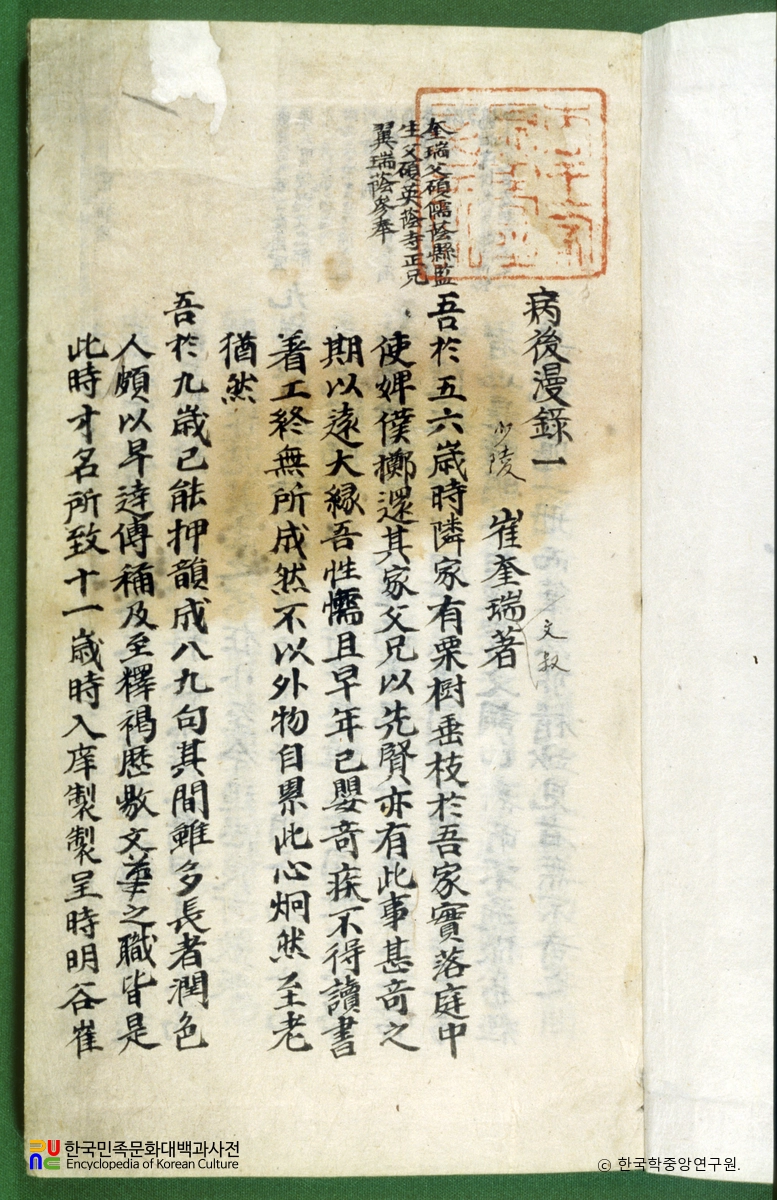 病後漫錄一
少陵
崔奎瑞著
文叔
奎瑞父碩儒蔭縣監
生父碩英蔭寺正兄
翼瑞蔭參奉
吾於五六歲時隣家有栗樹垂枝於吾家實落庭中
使婢僕擲還其家父兄以先賢亦有此事甚奇之
期以遠大緣吾性懦且早年已嬰奇疾不得讀書
着工終無所成然不以外物自累此心炯然至老
猶然
吾於九歲已能押韻成八九句其間雖多長者潤色
人頗以早達傳稱及至釋褐歷敭文華之職皆是
此時才名所致十一歲時入庠製製呈時明谷崔
한국민족문화대백과사전
Encyclopedia of Korean Culture
ⓒ 한국학중앙연구원.